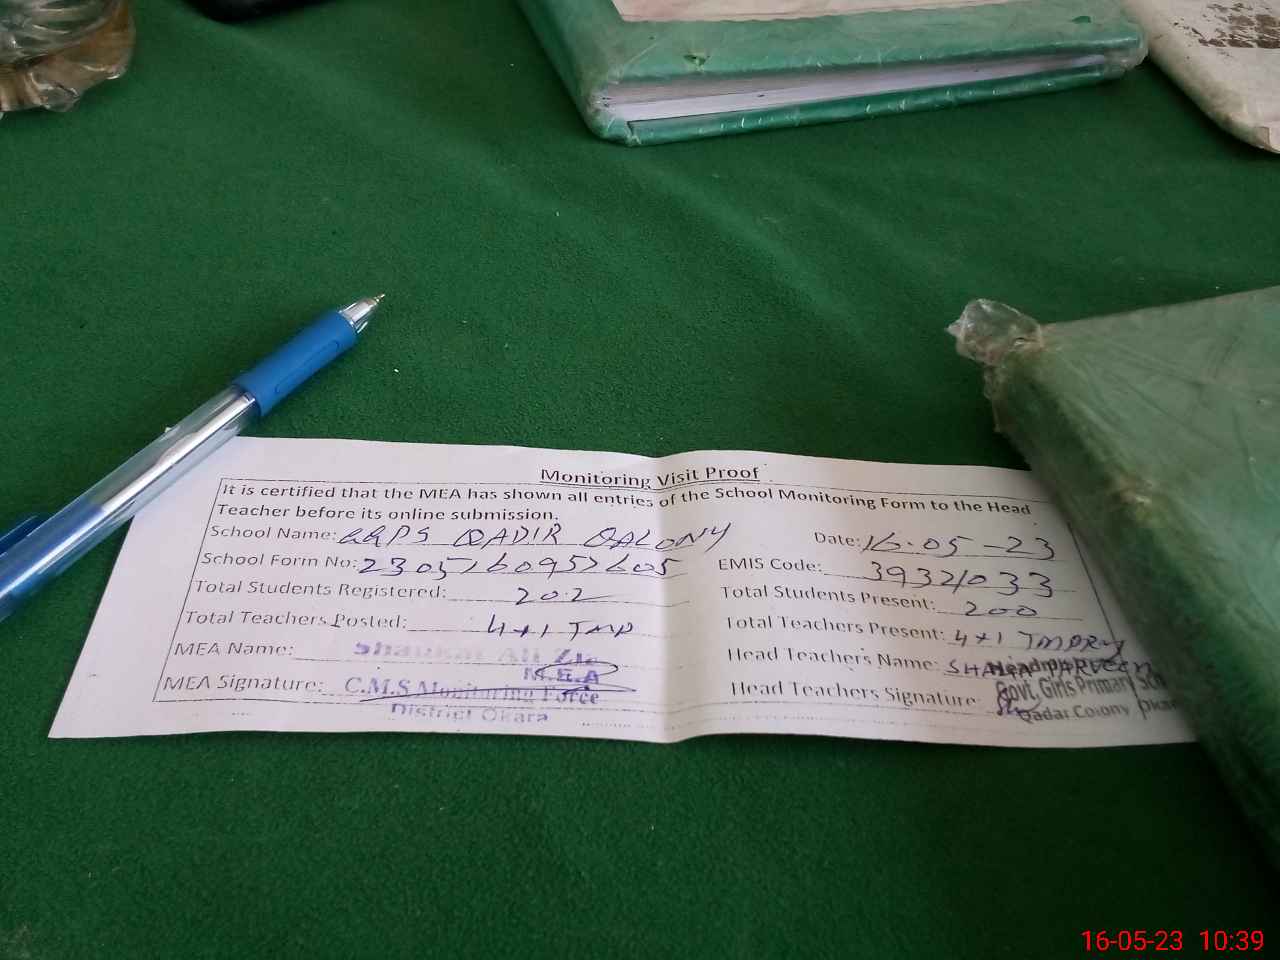 Monitoring Visit Proof
It is certified that the MEA has shown all entries of the School Monitoring Form to the Head
Teacher before its online submission.
School Name: GGPS QADIR QALONY Date: 16-05-23
School Form No: 23051609571605 EMIS Code: 39321033
Total Students Registered: 202 Total Students Present: 200
Total Teachers Posted: 4+1 TMP Total Teachers Present: 4+1 TMPRY
MEA Name: Shaukat Ali Zia Head Teachers Name: SHAHIDA PARVEEN
M.E.A
MEA Signature: C.M.S Monitoring Force Head Teachers Signature: Govt. Girls Primary Sch
District Okara Qadar Colony Okar
16-05-23 10:39